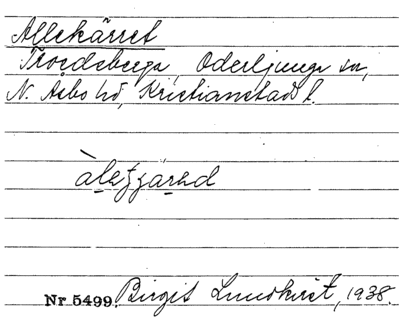 Allekärret
Troedsberga, Oderljunga sn,
N. Åsbo hd, Kristianstads l.
Nr 5499. Birgit Lundkvist, 1938.